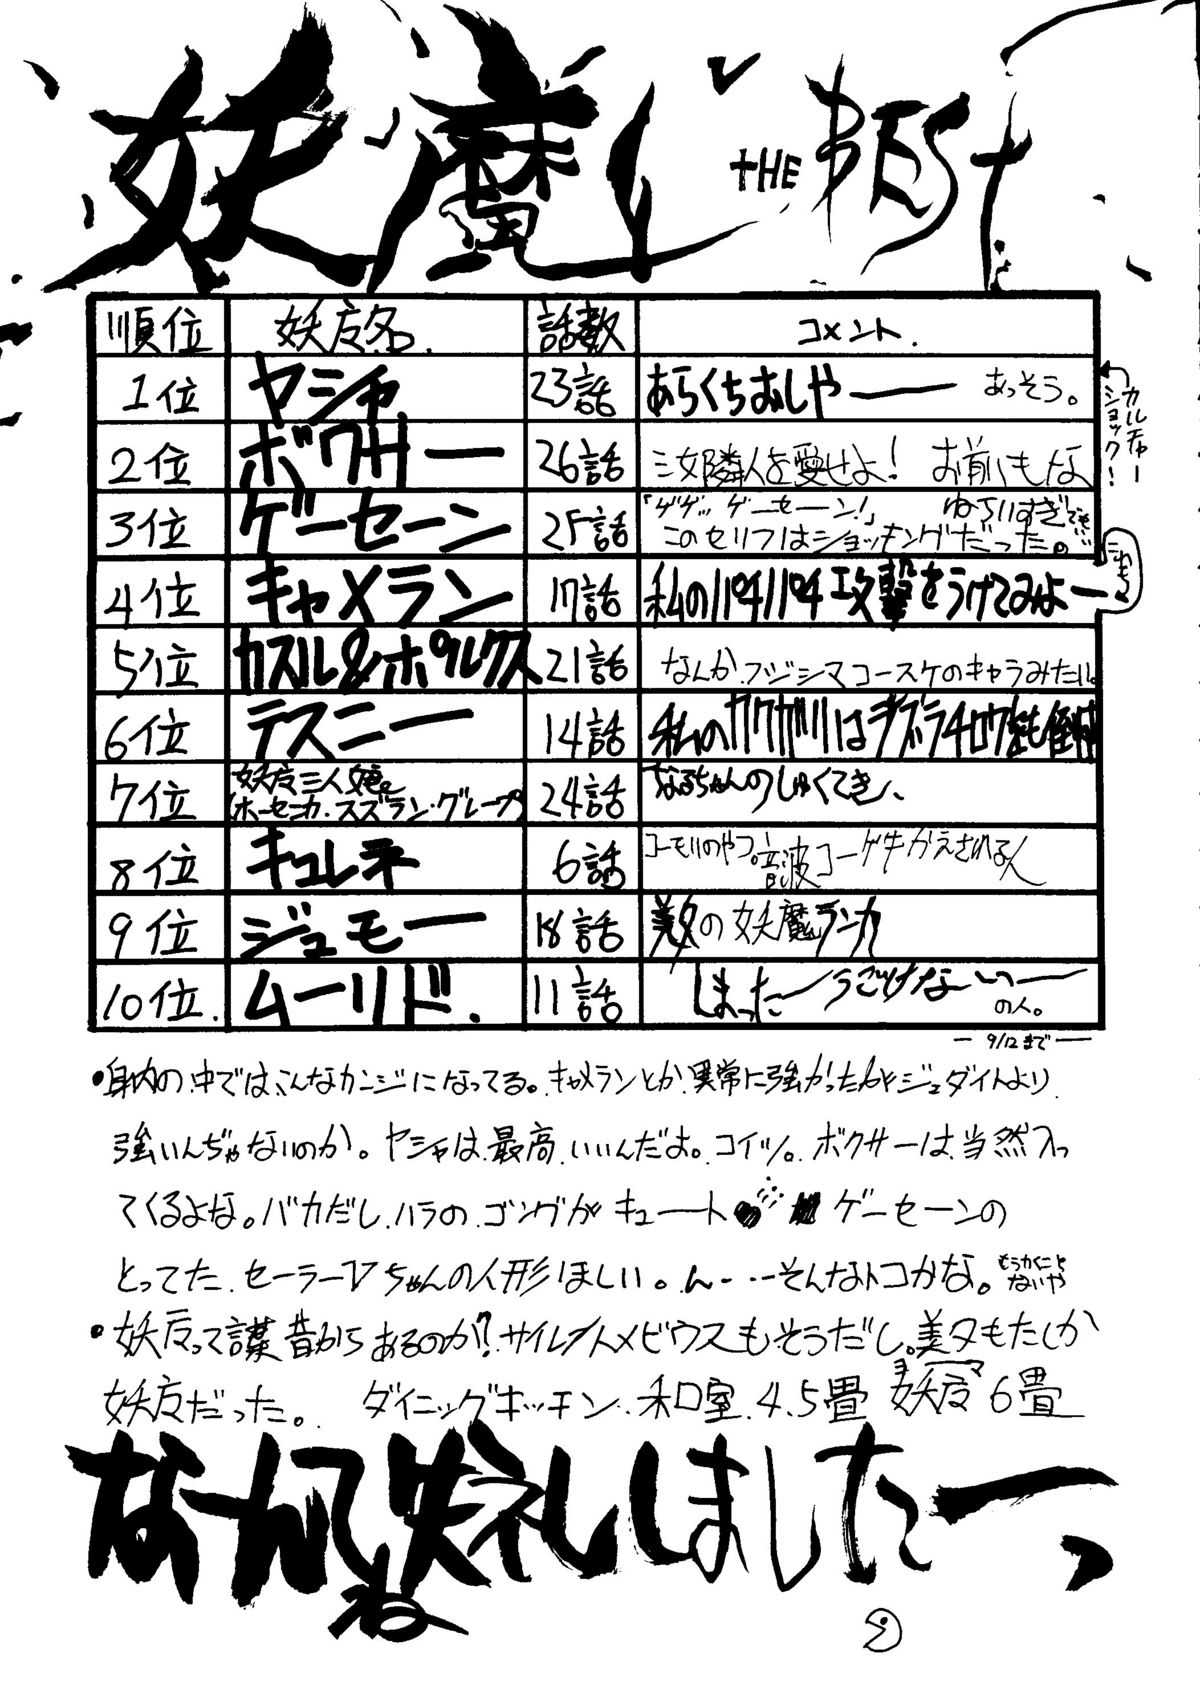 妖魔し THE BEST
順位 妖广名. 話数 コメント.
1位 ヤシャ 23話 あらくちおしやー あっそう。
カルチャーショック!
2位 ボクサー 26話 三女隣人を愛せよ! お前もな
3位 ゲーセーン 25話 「ゲゲッ ゲーセーン!」
このセリフはショッキングだった。
4位 キャメラン 17話 私のパチパチ攻撃をうけてみよー
5位 カスル&ポルクス 21話 なんか、フジシマコースケのキャラみたい。
6位 テスニー 14話 私の
7位 妖广三人娘。 24話 なるちゃんのしゅくてき、
(ホーセニカ・スズラン・グレープ)
8位 キュレネ 6話 コーモリのやつ。音波コーゲキかえされる人
9位 ジュモー 18話 美夕の妖魔ランカ
10位. ムーリド. 11話 しまったーうごけないー の人。
— 9/12まで —
•身内の中では、こんなカンジになってる。キャメランとか異常に強かったんやとジュダイトより
強いんぢゃないのか。ヤシャは最高いいんだよ。コイツ。ボクサーは当然入っ
てくるよな。バカだし、ハラのゴングがキュート ゲーセーンの
とってた、セーラーVちゃんの人形ほしい。ん・・・そんなトコかな。もうかくことないや
•妖广って言葉昔からあるのか?サイレントメビウスもそうだし。美夕もたしか
妖广だった。 ダイニングキッチン、和室4.5畳 妖广6畳
ヨーマ
なんてね失礼しましたーっ